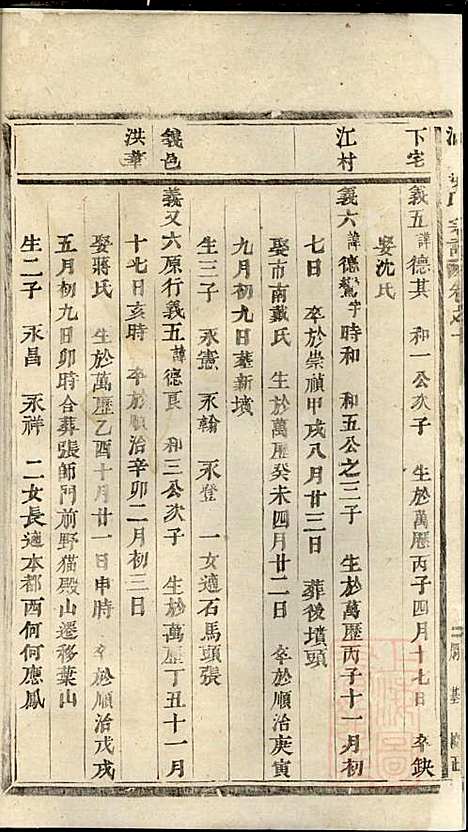 下宅
江村
義邑
洪華
義五諱德其 和一公次子 生於萬歷丙子四月十七日 卒缺
娶沈氏
義六諱德鰲字時和 和五公之三子 生於萬歷丙子十一月初
七日 卒於崇禎甲戌八月廿三日 葬後墳頭
娶市南戴氏 生於萬歷癸未四月廿二日 卒於順治庚寅
九月初九日葬新墳
生三子 永憲 永翰 永登 一女適石馬頭張
義又六原行義五諱德良 和三公次子 生於萬歷丁丑十一月
十七日亥時 卒於順治辛卯二月初三日
娶蔣氏 生於萬歷乙酉十月廿一日申時 卒於順治戊戌
五月初九日卯時合葬張師門前野猫殿山遷移葉山
生二子 永昌 永祥 二女長適本都西何何應鳳